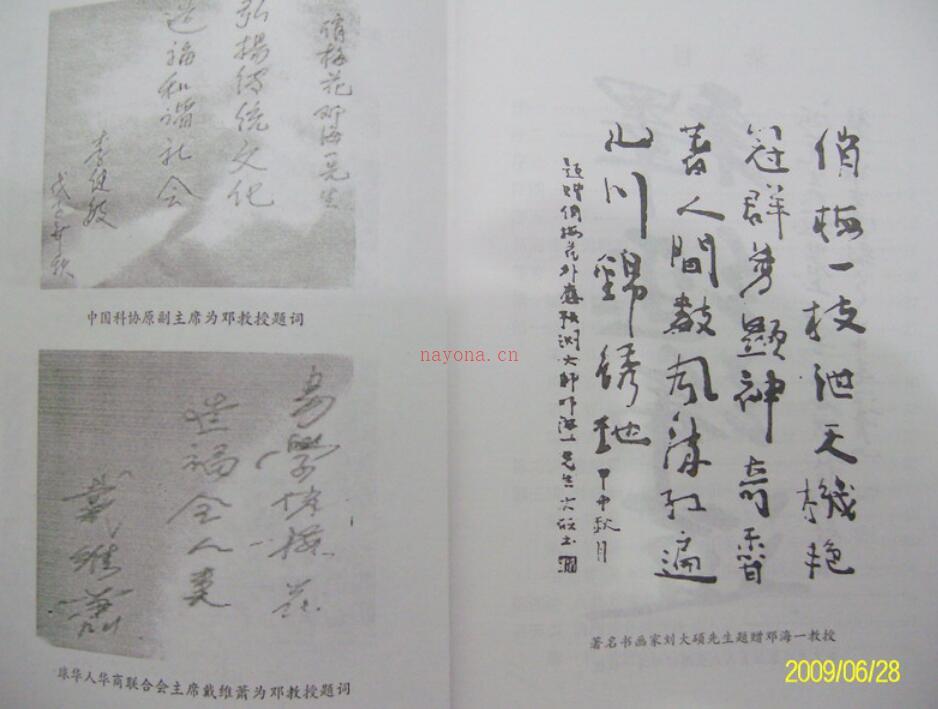 俏梅花邓海一先生
弘揚传统文化
造福和谐社会
李健毅
戊子年秋
中国科协原副主席为邓教授题词
易學博梅花
造福全人类
戴維蕭
球华人华商联合会主席戴维萧为邓教授题词
俏梅一枝泄天機艳
冠群芳顯神奇香
書人間數風流红遍
九州錦绣地 甲申秋月
题贈俏梅花外應預測大師邓海一先生大硕书
著名书画家刘大硕先生题赠邓海一教授
nayona.cn
2009/06/28